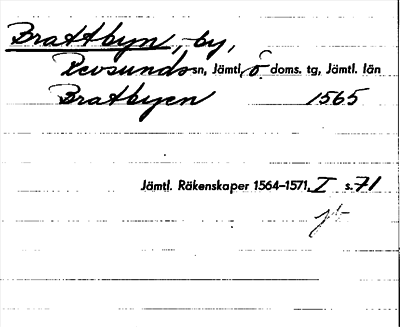 Brattbyn, by,
Revsunds sn, Jämtl. ö. doms. tg, Jämtl. län
Bratbyen 1565
Jämtl. Räkenskaper 1564–1571, I s. 71